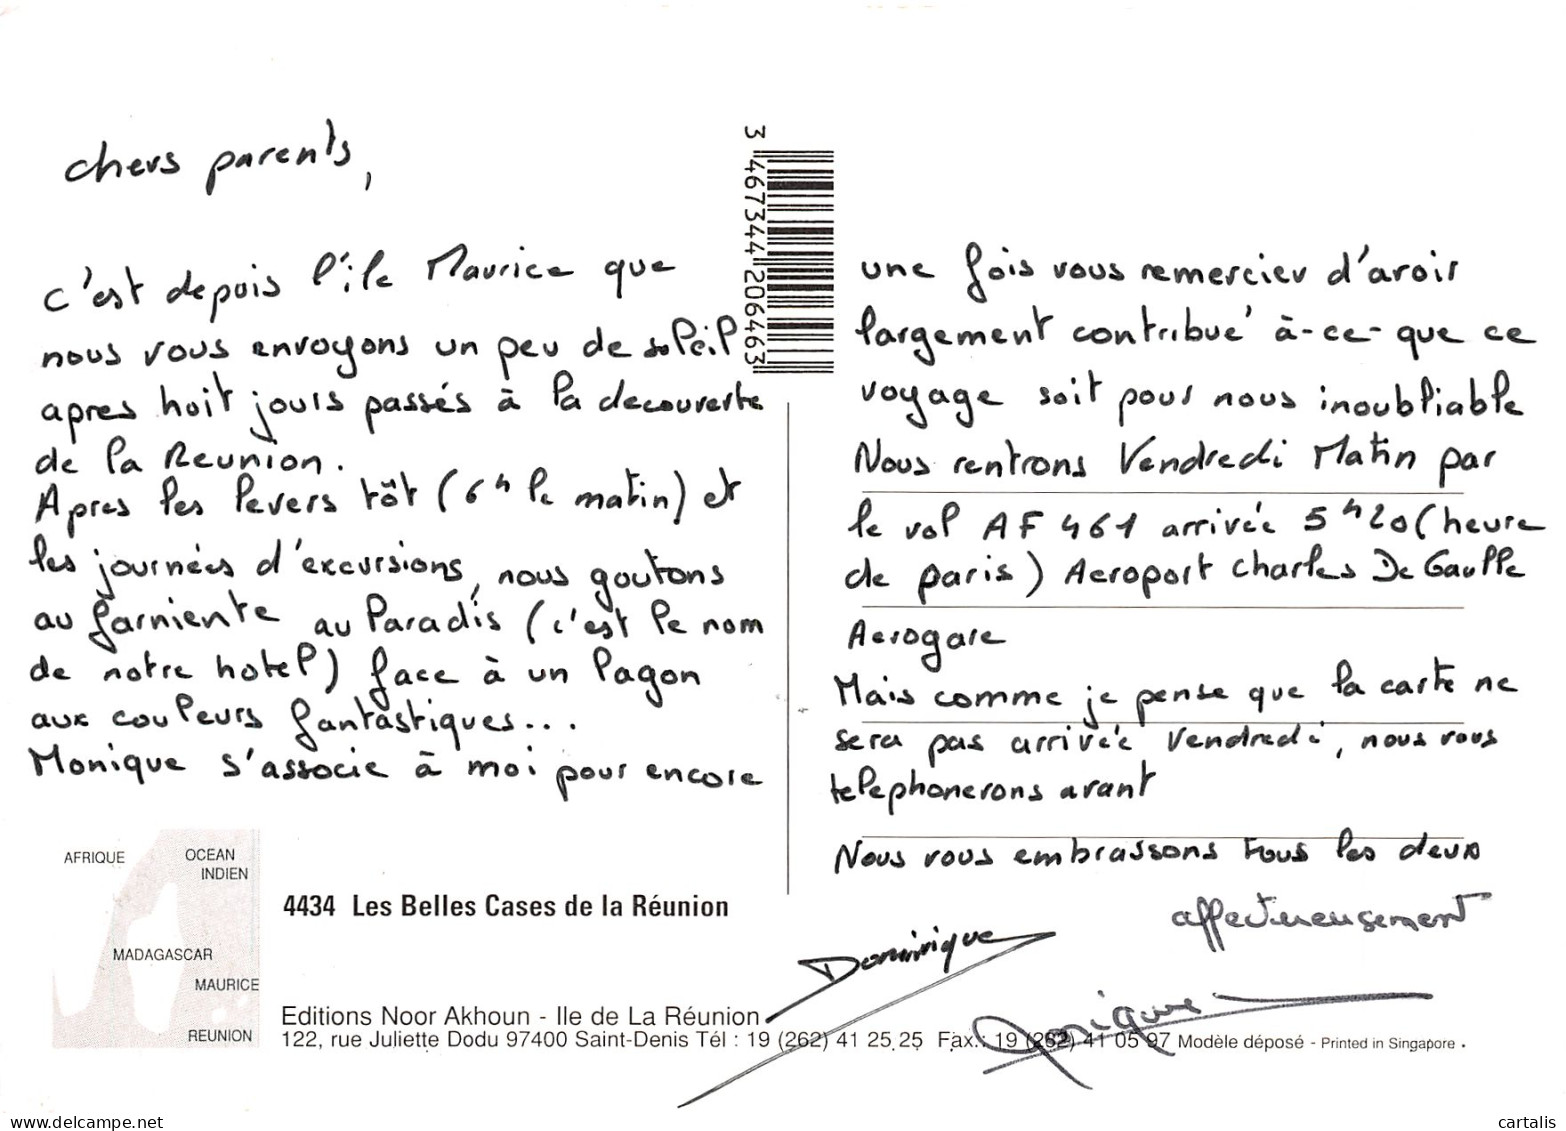 chers parents,
c'est depuis l'île Maurice que
nous vous envoyons un peu de soleil
apres huit jours passés à la decouverte
de la Reunion.
Apres les levers tôt (6h le matin) et
les journées d'excursions, nous goutons
au farniente au Paradis (c'est le nom
de notre hotel) face à un lagon
aux couleurs fantastiques...
Monique s'associe à moi pour encore
3 467344 206463
une fois vous remercier d'avoir
largement contribué à-ce-que ce
voyage soit pour nous inoubliable
Nous rentrons Vendredi Matin par
le vol AF 461 arrivée 5h20 (heure
de paris) Aeroport Charles De Gaulle
Aerogare
Mais comme je pense que la carte ne
sera pas arrivée Vendredi, nous vous
telephonerons avant
Nous vous embrassons tous les deux
affectueusement
Dominique
Monique
AFRIQUE
OCEAN
INDIEN
MADAGASCAR
MAURICE
REUNION
4434 Les Belles Cases de la Réunion
Editions Noor Akhoun - Ile de La Réunion
122, rue Juliette Dodu 97400 Saint-Denis Tél : 19 (262) 41 25 25 Fax.: 19 (262) 41 05 97 Modèle déposé - Printed in Singapore.
www.delcampe.net
cartalis